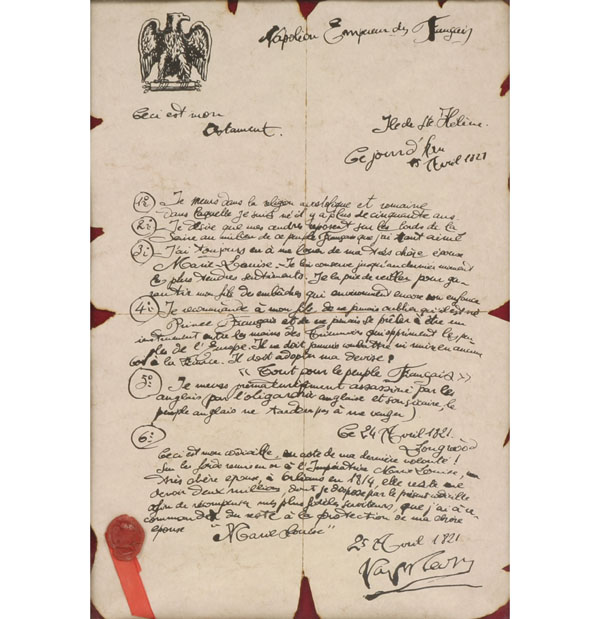 Napoléon Empereur des Français
Ceci est mon
testament.
Ile de Ste Hélène.
Ce jourd'hui
15 Avril 1821
1º Je meurs dans la religion apostolique et romaine
dans laquelle je suis né il y a plus de cinquante ans.
2º Je désire que mes cendres reposent sur les bords de la
Seine au milieu de ce peuple Français que j'ai tant aimé
3º J'ai toujours eu à me louer de ma très chère épouse
Marie-Louise. Je lui conserve jusqu'au dernier moment
les plus tendres sentiments. Je la prie de veiller pour ga-
rantir mon fils des embûches qui environnent encore son enfance
4º Je recommande à mon fils de ne jamais oublier qu'il est né
Prince Français et de ne jamais se prêter à être un
instrument entre les mains des qui oppriment les peu-
ples de l'Europe. Il ne doit jamais combattre ni nuire en aucun
à la France. Il doit adopter ma devise :
« Tout pour le peuple Français »
5º Je meurs prématurément assassiné par les
anglais par l'oligarchie anglaise et son sicaire, le
peuple anglais ne tardera pas à me venger
Ce 24 Avril 1821.
Longwood
6º
Ceci est mon codicille, ou acte de ma dernière volonté !
Sur les fonds remis en or à l'Impératrice Marie Louise, ma
très chère épouse, à Orléans en 1814, elle reste me
devoir deux millions, dont je dispose par le présent codicille
afin de récompenser mes plus fidèles serviteurs, que j'ai re
commandé du reste à la protection de ma chère
épouse "Marie Louise"
25 Avril 1821